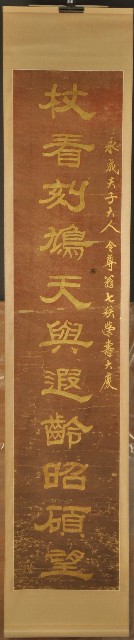 永成夫子大人令尊翁七秩榮壽大慶
杖看刻鳩天與遐齡昭碩望